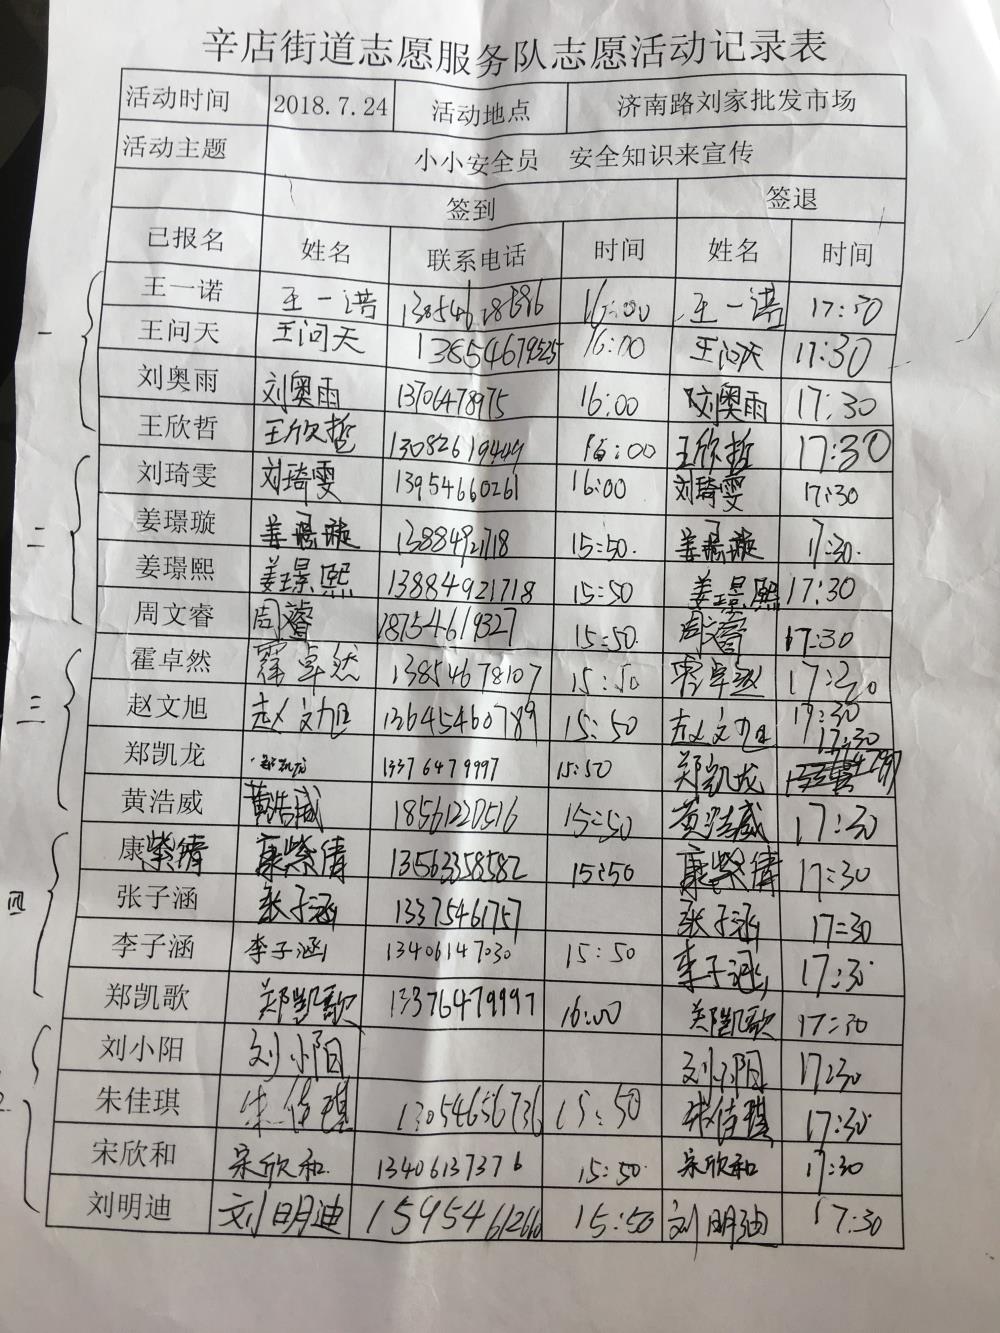 辛店街道志愿服务队志愿活动记录表
活动时间 2018.7.24 活动地点 济南路刘家批发市场
活动主题 小小安全员 安全知识来宣传
签到 签退
已报名 姓名 联系电话 时间 姓名 时间
一
王一诺 王一诺 16:00 王一诺 17:30
王问天 王问天 13854679525 16:00 王问天 17:30
刘奥雨 刘奥雨 13706478975 16:00 刘奥雨 17:30
王欣哲 王欣哲 13082619449 16:00 王欣哲 17:30
二
刘琦雯 刘琦雯 13954660261 16:00 刘琦雯 17:30
姜璟璇 姜璟璇 13884921718 15:50. 姜璟璇 17:30.
姜璟熙 姜璟熙 13884921718 15:50 姜璟熙 17:30
周文睿 周文睿 18754619327 15:50. 周文睿 17:30
三
霍卓然 霍卓然 13854678107 15:50 霍卓然 17:30
赵文旭 赵文旭 13645460789 15:50 赵文旭 17:30
郑凯龙 郑凯龙 13376479997 15:50 郑凯龙 17:30
黄浩威 黄浩威 18561220516 15:50 黄浩威 17:30
四
康紫倩 康紫倩 13563358582 15:50 康紫倩 17:30
张子涵 张子涵 13375461757 张子涵 17:30
李子涵 李子涵 13406147030 15:50 李子涵 17:30
郑凯歌 郑凯歌 13376479997 16:00 郑凯歌 17:30
刘小阳 刘小阳 刘小阳 17:30
朱佳琪 朱佳琪 13054656736 15:50 朱佳琪 17:30
宋欣和 宋欣和 13406137376 15:50. 宋欣和 17:30
刘明迪 刘明迪 15:50 刘明迪 17:30